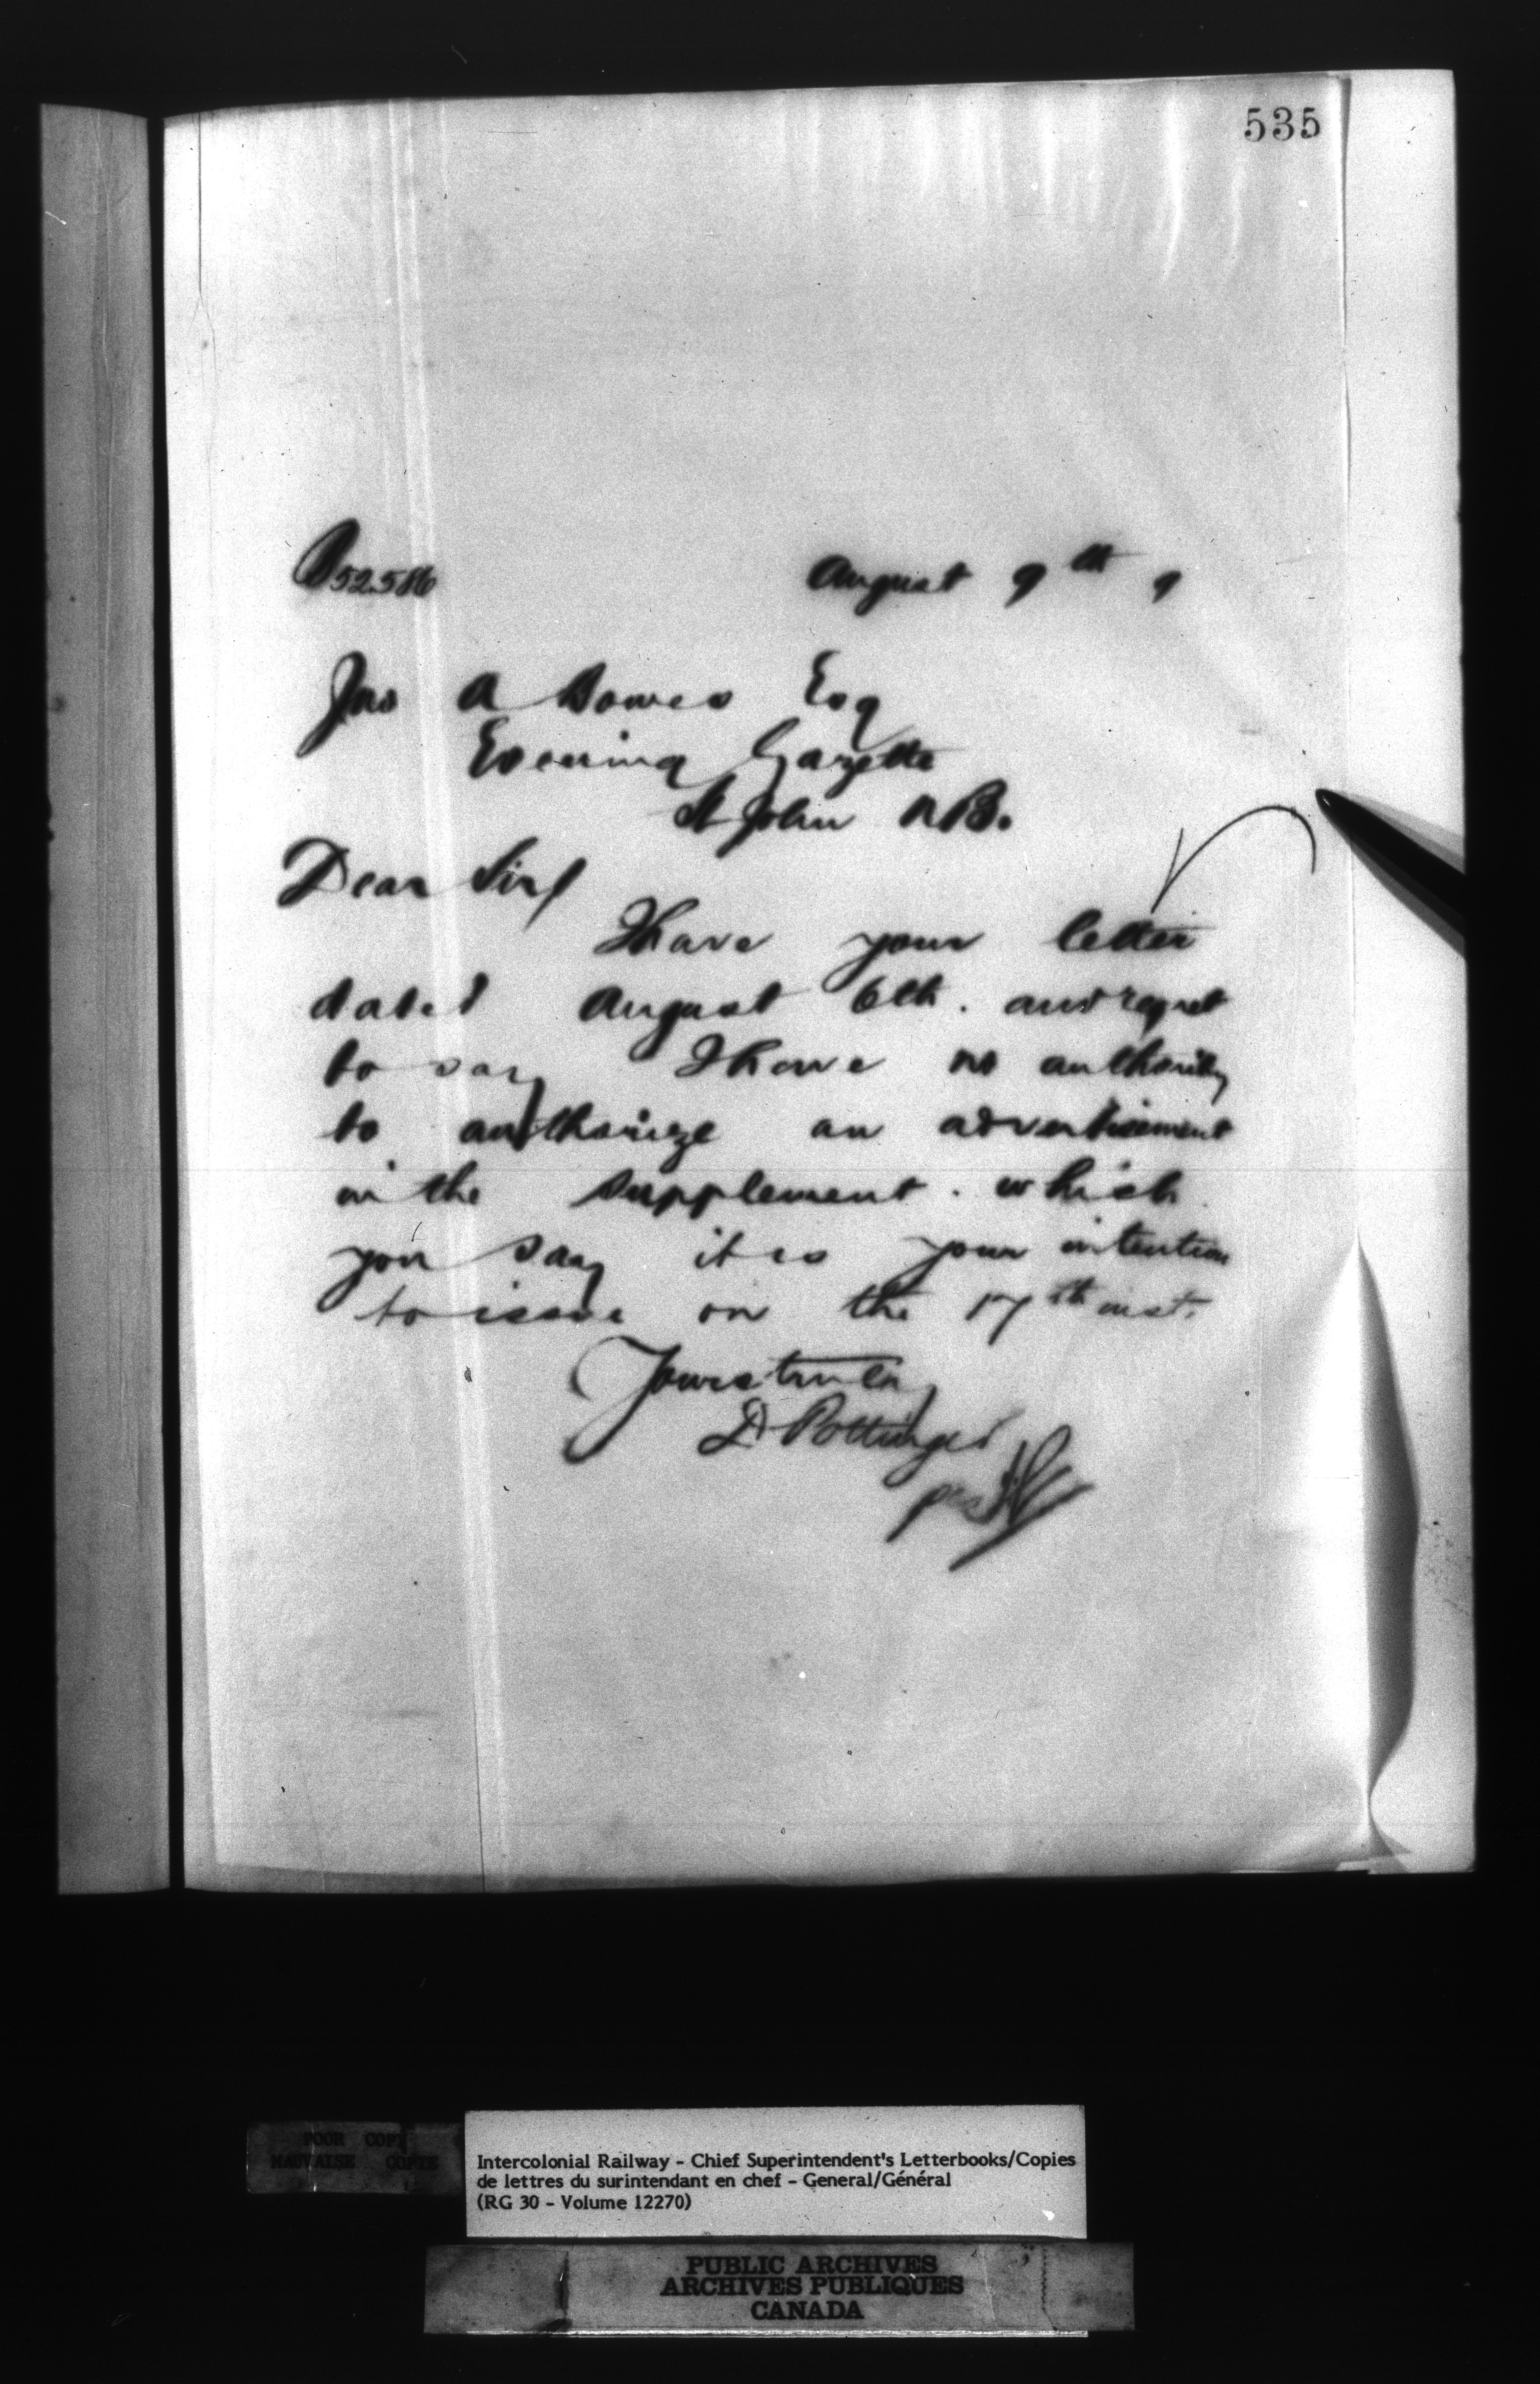 535
52586 August 9th 9
Jno A Bowes Esq
Evening Gazette
St John NB.
Dear Sir
I have your letter
dated August 6th. and regret
to say I have no authority
to authorize an advertisement
in the supplement. which
you say it is your intention
to issue on the 17th inst.
Yours truly
D Pottinger
per
POOR COPY
MAUVAISE COPIE
Intercolonial Railway - Chief Superintendent's Letterbooks/Copies
de lettres du surintendant en chef - General/Général
(RG 30 - Volume 12270)
PUBLIC ARCHIVES
ARCHIVES PUBLIQUES
CANADA